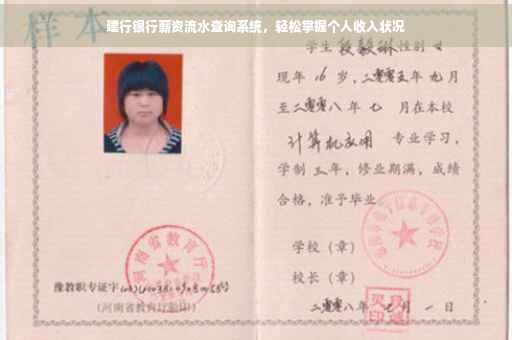 建行银行薪资流水查询系统，轻松掌握个人收入状况
样本
学生 段毅琳 性别 女
现年 16 岁，二零零五年 九月
至二零零八年 七 月在本校
计算机应用 专业学习，
学制 三 年，修业期满，成绩
合格，准予毕业。
学校（章）
校长（章）
二零零八年 七 月 一 日
河南省教育厅
豫教职专证字
（河南省教育厅验印）